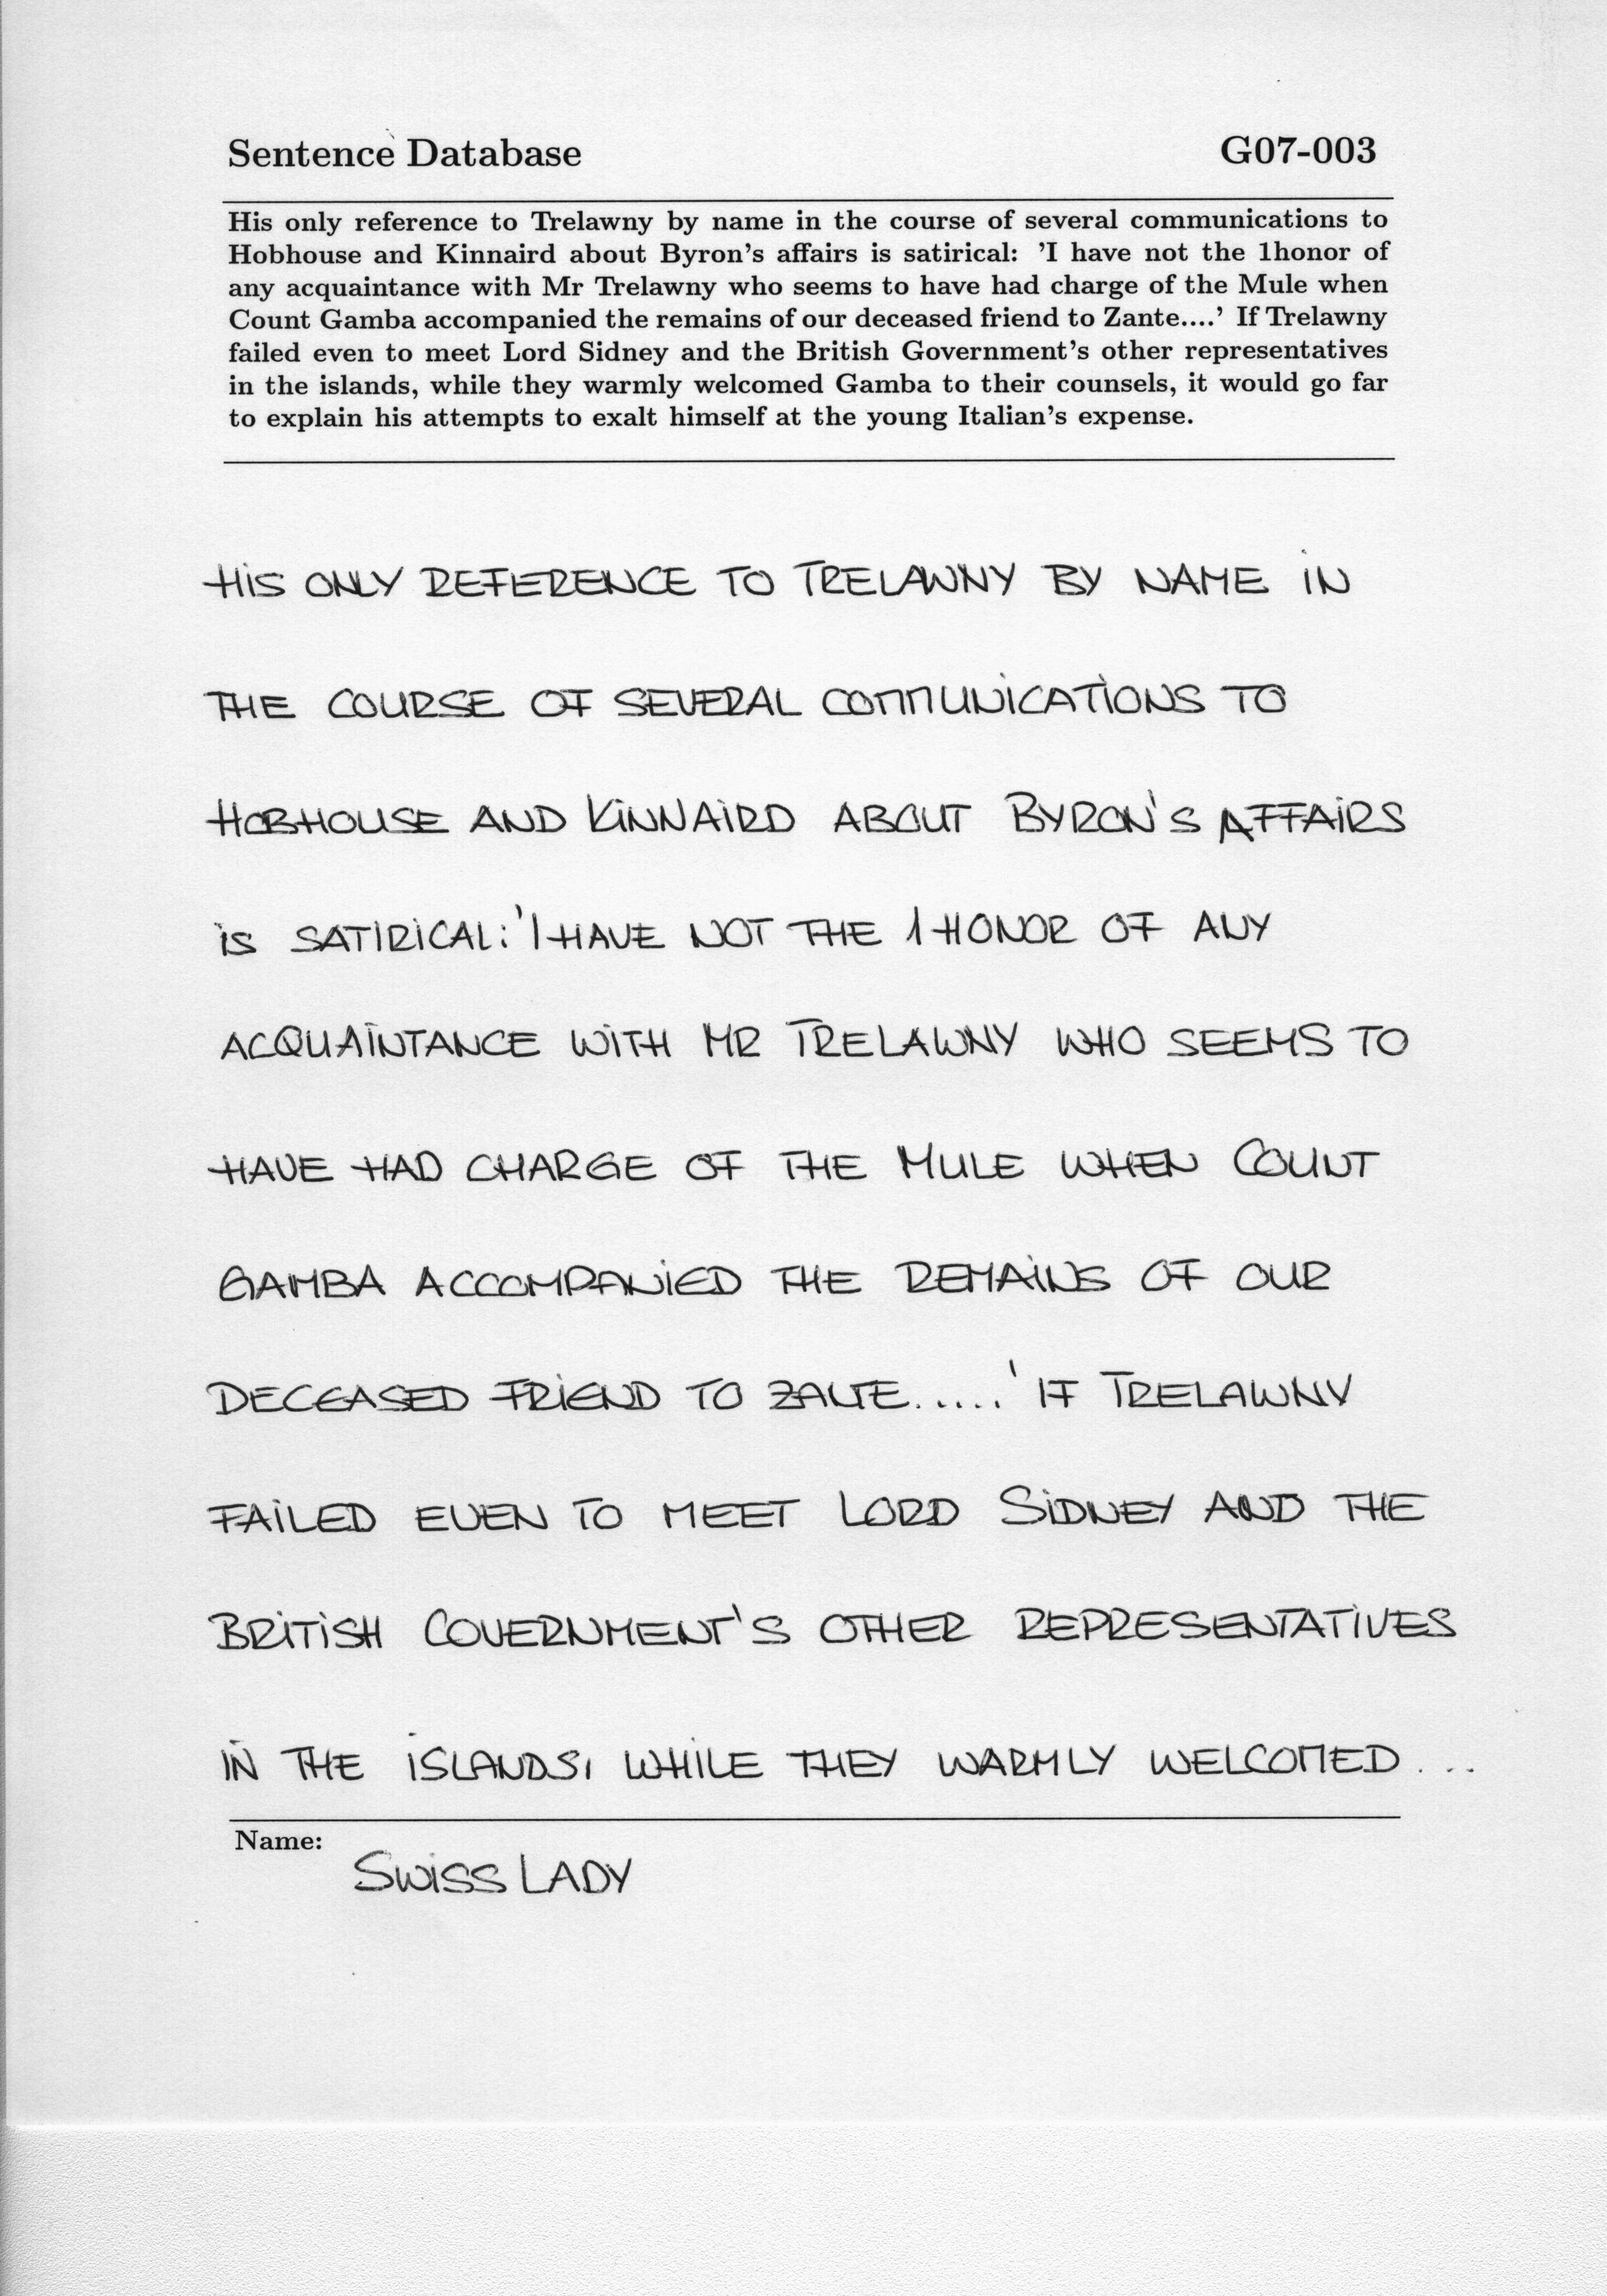 Sentence Database
G07-003
His only reference to Trelawny by name in the course of several communications to
Hobhouse and Kinnaird about Byron's affairs is satirical: 'I have not the 1honor of
any acquaintance with Mr Trelawny who seems to have had charge of the Mule when
Count Gamba accompanied the remains of our deceased friend to Zante....' If Trelawny
failed even to meet Lord Sidney and the British Government's other representatives
in the islands, while they warmly welcomed Gamba to their counsels, it would go far
to explain his attempts to exalt himself at the young Italian's expense.
HiS ONLY REFERENCE TO TRELAWNY BY NAME iN
THE COURSE OF SEVERAL COMMUNiCATiONS TO
HOBHOUSE AND KiNNAiRD ABOUT BYRON'S AFFAiRS
iS SATIRiCAL: 'I HAVE NOT THE 1HONOR OF ANY
ACQUAiNTANCE WiTH MR TRELAWNY WHO SEEMS TO
HAVE HAD CHARGE OF THE MULE WHEN COUNT
GAMBA ACCOMPANiED THE REMAiNS OF OUR
DECEASED FRiEND TO ZANTE.....' IF TRELAWNY
FAiLED EVEN TO MEET LORD SiDNEY AND THE
BRiTiSH GOVERNMENT'S OTHER REPRESENTATiVES
iN THE iSLANDS, WHiLE THEY WARMLY WELCOMED ...
Name:
SWiSS LADY